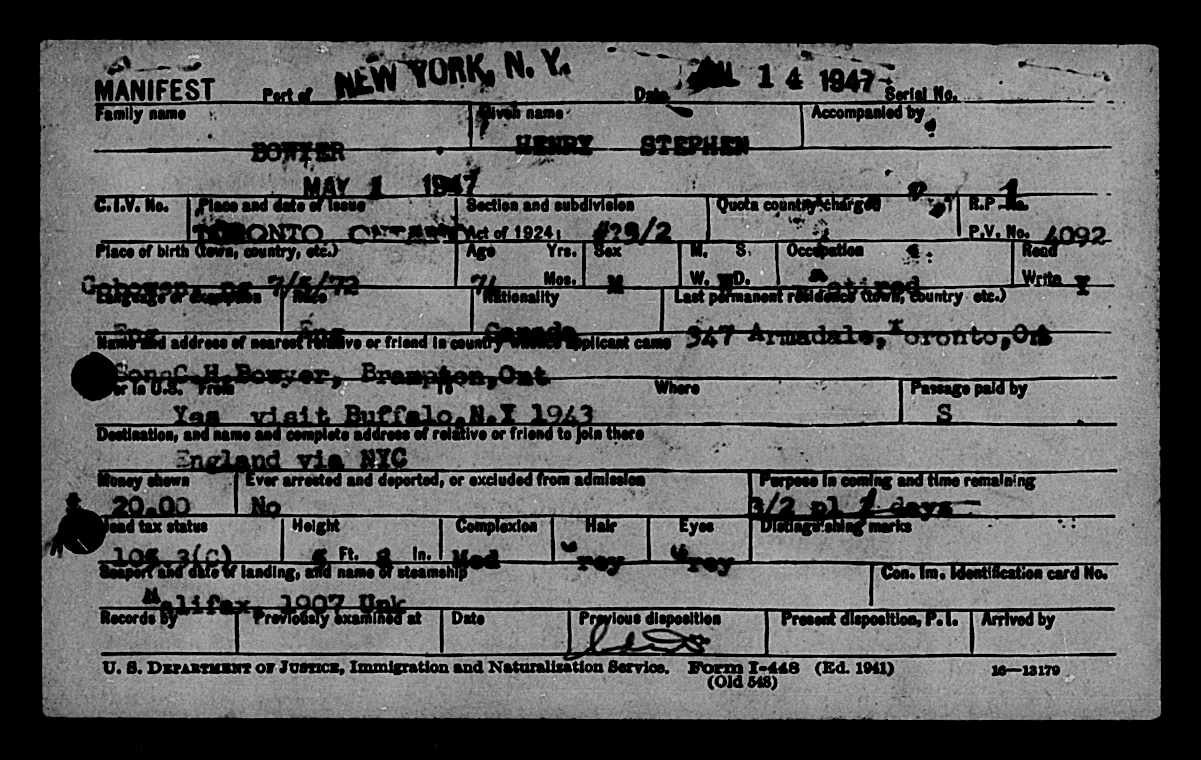 MANIFEST Port of NEW YORK, N. Y. Date 14 1947 Serial No.
Family name Given name Accompanied by
BOWYER HENRY STEPHEN
MAY 1 1947 1
C.I.V. No. Place and date of issue Section and subdivision Quota country charged R.P. No.
TORONTO ONTARIO Act of 1924: 3/2 P.V. No. 4092
Place of birth (town, country, etc.) Age Yrs. Sex M. S. Occupation Read
Mos. M W. D. etired Write Y
Language or exemption Race Nationality Last permanent residence (town, country etc.)
Eng Eng Canada 347 Armadale, Toronto, Ont
Name and address of nearest relative or friend in country whence applicant came
Son C.H. Bowyer, Brampton, Ont
Ever in U.S. From To Where Passage paid by
Yes visit Buffalo, N.Y 1943 S
Destination, and name and complete address of relative or friend to join there
England via NYC
Money shown Ever arrested and deported, or excluded from admission Purpose in coming and time remaining
20.00 No 3/2 pl 2 days
Head tax status Height Complexion Hair Eyes Distinguishing marks
105 3(C) 5 Ft. 8 In. Med rey rey
Seaport and date of landing, and name of steamship Con. Im. Identification card No.
Halifax, 1907 Unk
Records by Previously examined at Date Previous disposition Present disposition, P. I. Arrived by
U. S. DEPARTMENT OF JUSTICE, Immigration and Naturalization Service. Form I-448 (Ed. 1941) 16—13179
(Old 548)